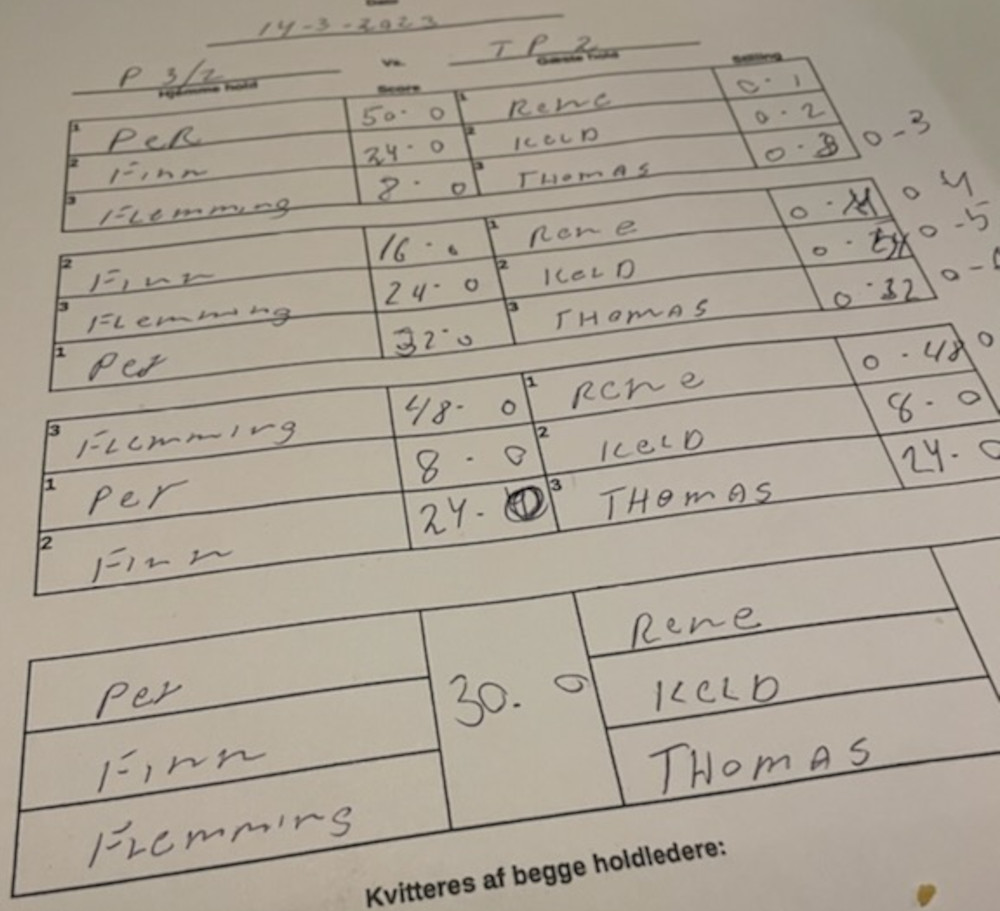 14-3-2023
P 3/2 Vs. TP 2
Hjemme hold Score Gæste hold Stilling
1 PeR 50-0 1 Rene 0-1
2 Finn 24-0 2 KeLD 0-2
3 FLemming 8-0 3 THOMAS 0-3
2 Finn 16-0 1 Rene 0-4
3 FLemming 24-0 2 KeLD 0-5
1 Per 32-0 3 THOMAS 0-32
3 FLemming 48-0 1 Rene 0-48
1 Per 8-0 2 KeLD 8-0
2 Finn 24-0 3 THOMAS 24-0
Per 30-0 Rene
Finn KeLD
FLemming THOMAS
Kvitteres af begge holdledere: